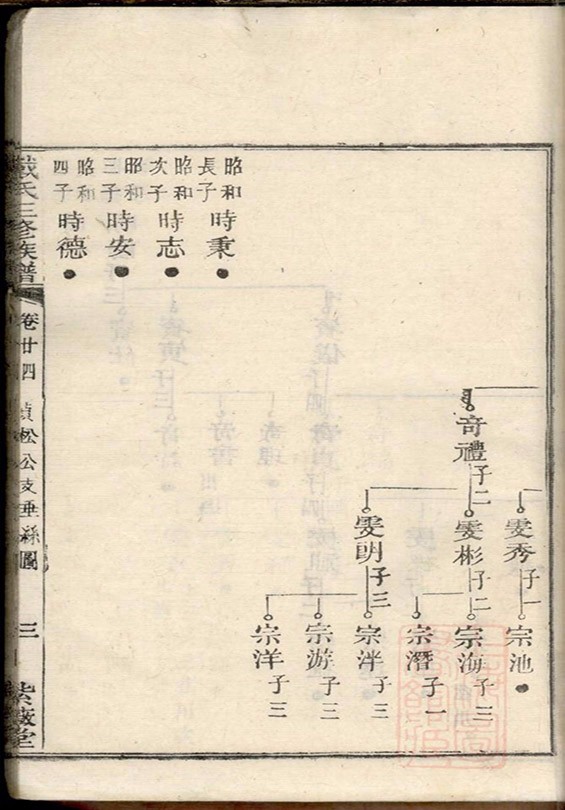 昭和長子 時秉
昭和次子 時志
昭和三子 時安
昭和四子 時德
奇禮 子二
雯秀 子一
雯彬 子二
雯明 子三
宗池
宗海 子三
宗潛 子一
宗泮 子三
宗游 子三
宗洋 子三
戴氏三修族譜
卷廿四
貞松公支垂絲圖
三
紫薇堂